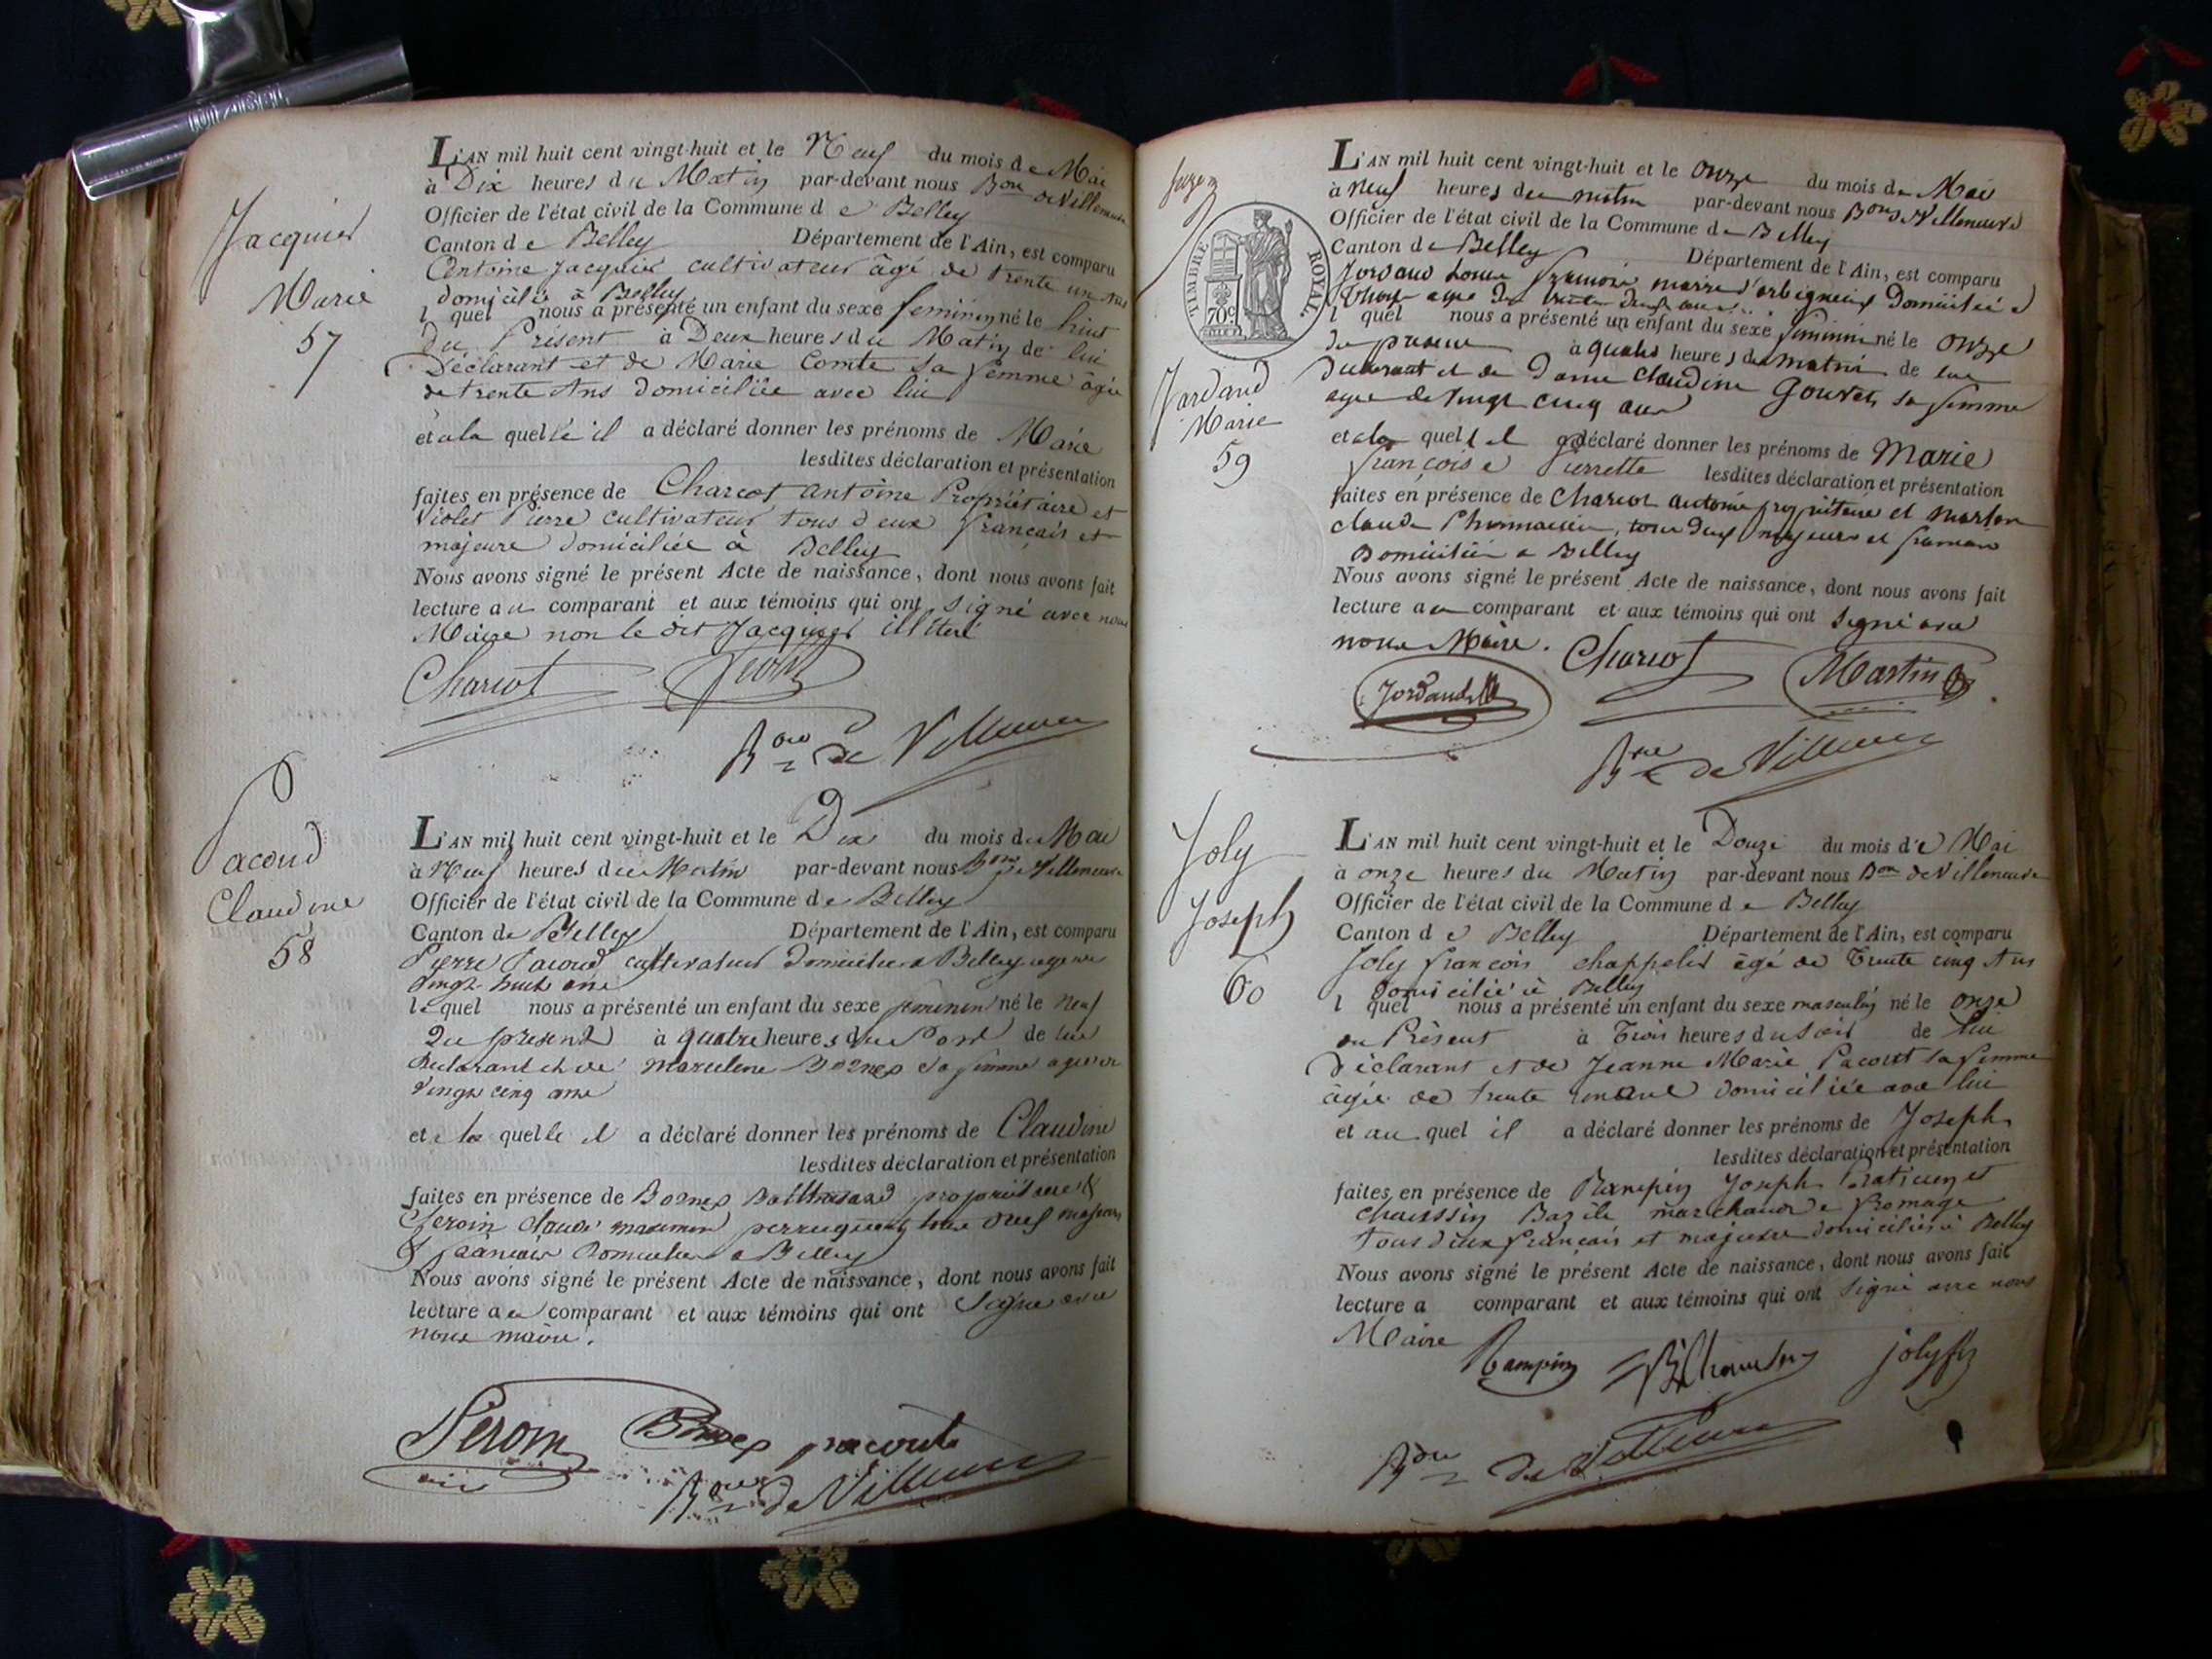 Jacquier
Marie
57
L'AN mil huit cent vingt-huit et le Neuf du mois de Mai
à Dix heures du Matin par-devant nous Bon de Villeneuve
Officier de l'état civil de la Commune de Belley
Canton de Belley Département de l'Ain, est comparu
Antoine Jacquier cultivateur âgé de trente un Ans
domicilié à Belley
l quel nous a présenté un enfant du sexe feminin né le huit
du Présent à Deux heures du Matin de lui
Déclarant et de Marie Comte sa femme âgée
de trente Ans domiciliée avec lui
et a la quelle il a déclaré donner les prénoms de Marie
lesdites déclaration et présentation
faites en présence de Charcot Antoine Propriétaire et
Violet Pierre cultivateur tous deux français et
majeure domiciliée à Belley
Nous avons signé le présent Acte de naissance, dont nous avons fait
lecture au comparant et aux témoins qui ont signé avec nous
Maire non le dit Jacquier illiteré
Charcot
Bon de Villeneuve
Pacoud
Claudine
58
L'AN mil huit cent vingt-huit et le Dix du mois de Mai
à Neuf heures du Matin par-devant nous Bon de Villeneuve
Officier de l'état civil de la Commune de Belley
Canton de Belley Département de l'Ain, est comparu
Pierre Pacoud cultivateur domicilié a Belley age de
vingt huit ans
le quel nous a présenté un enfant du sexe feminin né le neuf
du present à quatre heures du de lui
declarant et de sa femme agee de
vingt cinq ans
et a la quelle il a déclaré donner les prénoms de Claudine
lesdites déclaration et présentation
faites en présence de Balthazard propriétaire &
Peroin claude perruquier tous deux majeurs
& francais domicilies a Belley
Nous avons signé le présent Acte de naissance, dont nous avons fait
lecture au comparant et aux témoins qui ont signé avec
nous maire.
Peroin pacoud
Bon de Villeneuve
TIMBRE ROYAL
70c
Jordaud
Marie
59
L'AN mil huit cent vingt-huit et le onze du mois de Mai
à neuf heures du matin par-devant nous Bon de Villeneuve
Officier de l'état civil de la Commune de Belley
Canton de Belley Département de l'Ain, est comparu
Jordaud Louis François maire d'arbignieu Domicilié a
Thoys age de trente deux ans
l quel nous a présenté un enfant du sexe feminin né le onze
du present à quatre heures du matin de lui
declarant et de Dame Claudine Gouvet sa femme
agee de vingt cinq ans
et a la quelle il a déclaré donner les prénoms de Marie
françoise Pierrette lesdites déclaration et présentation
faites en présence de Charcot antoine propriétaire et martin
claude Pharmacien, tous deux majeurs et francais
Domiciliés a Belley
Nous avons signé le présent Acte de naissance, dont nous avons fait
lecture au comparant et aux témoins qui ont signé avec
nous Maire.
Jordaud Charcot Martin
Bon de Villeneuve
Joly
Joseph
60
L'AN mil huit cent vingt-huit et le Douze du mois de Mai
à onze heures du Matin par-devant nous Bon de Villeneuve
Officier de l'état civil de la Commune de Belley
Canton de Belley Département de l'Ain, est comparu
Joly françois chappelier âgé de trente cinq Ans
domicilié à Belley
l quel nous a présenté un enfant du sexe masculin né le onze
du Présent à Trois heures du soir de lui
déclarant et de Jeanne Marie Pacout sa femme
âgée de trente domiciliée avec lui
et au quel il a déclaré donner les prénoms de Joseph
lesdites déclaration et présentation
faites en présence de Rampin Joseph Praticien et
chaussin Bazile marchand de fromage
tous deux français et majeurs domiciliés à Belley
Nous avons signé le présent Acte de naissance, dont nous avons fait
lecture a comparant et aux témoins qui ont signé avec nous
Maire
Rampin B Chaussin joly fs
Bon de Villeneuve